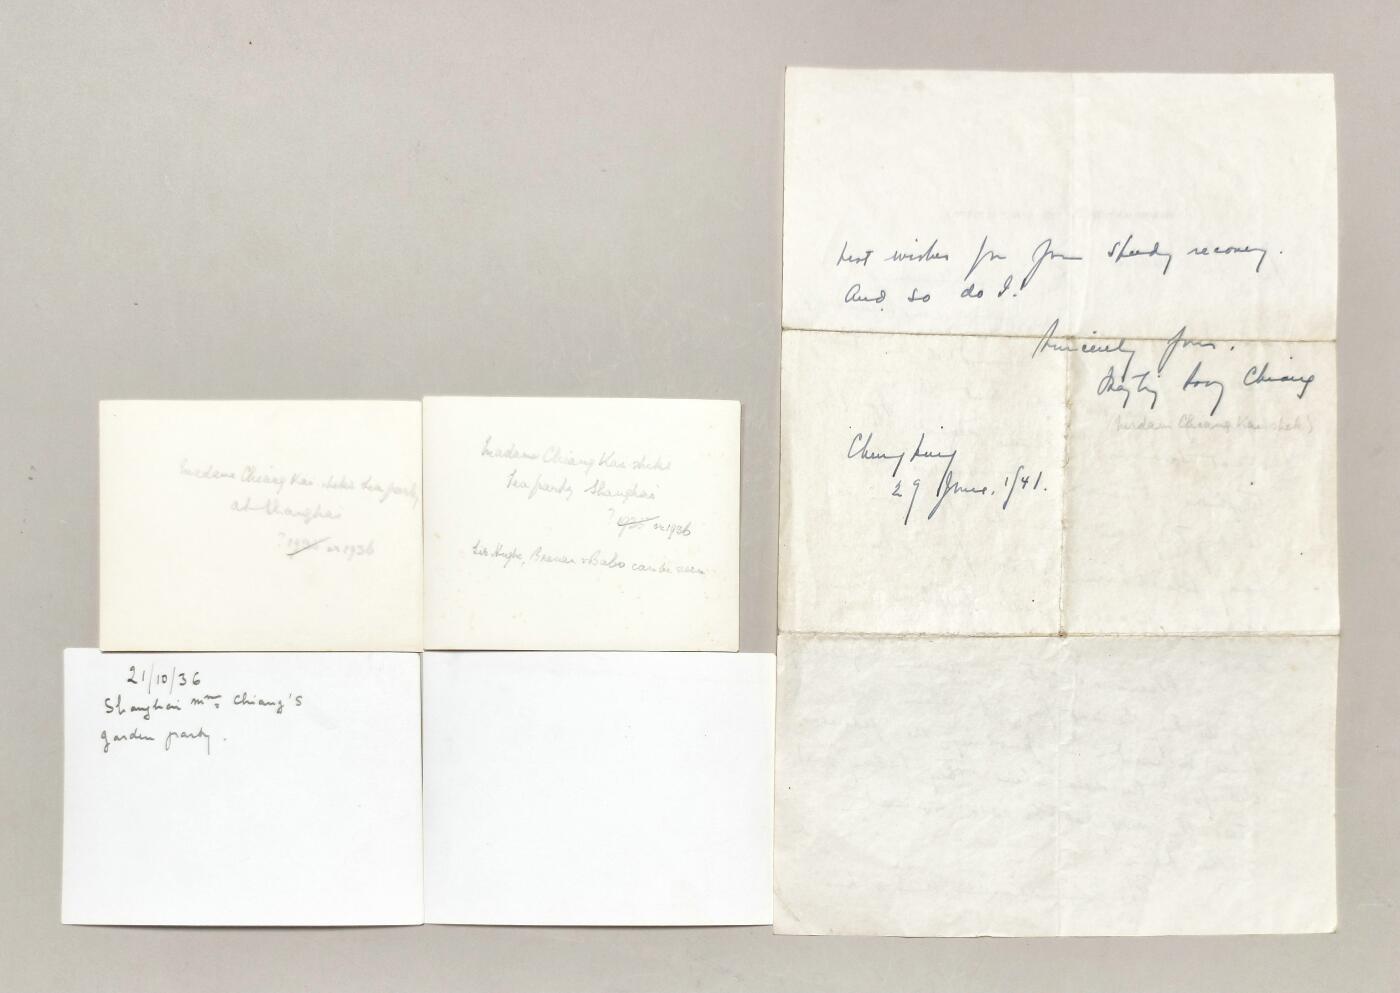 best wishes for your speedy recovery.
And so do I!
Sincerely yours.
Mayling Soong Chiang
(Madame Chiang Kai-shek)
Chungking
29 June, 1941.
Madame Chiang Kai-sheks tea party
at Shanghai
? 1935 or 1936
Madame Chiang Kai-sheks
Tea party Shanghai
? 1935 or 1936
Sir Hughe, Brenan & Babo can be seen
21/10/36
Shanghai Mme Chiang's
garden party.